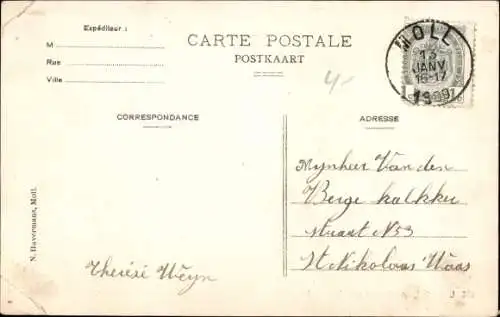 Expéditeur :
M
Rue
Ville
CARTE POSTALE
POSTKAART
MOLL
13
JANV
16-17
1909
4-
CORRESPONDANCE
ADRESSE
Mynheer Van den
Berge kalkker
straat N 53
St Nikolaas Waas
Thérèsè Weyn
N. Havermans, Moll.